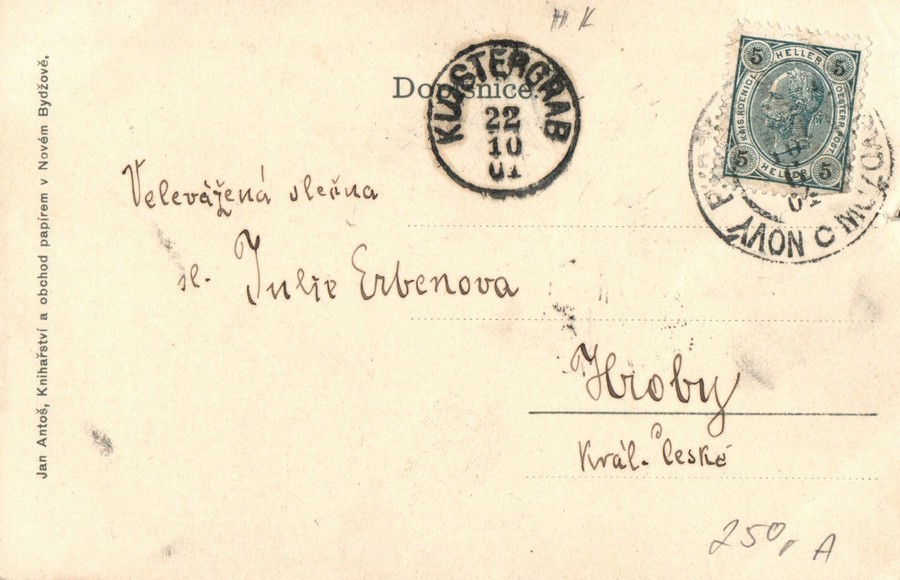 H. K
Dopisnice.
KLOSTERGRAB
22
10
01
5 HELLER 5
KAIS. KOENIGL. OESTERR. POST.
5 HELLER 5
NOVÝ
Velevážená slečna
sl. Julie Erbenova
Hroby
Král. České
250,- A
Jan Antoš, Knihařství a obchod papírem v Novém Bydžově.